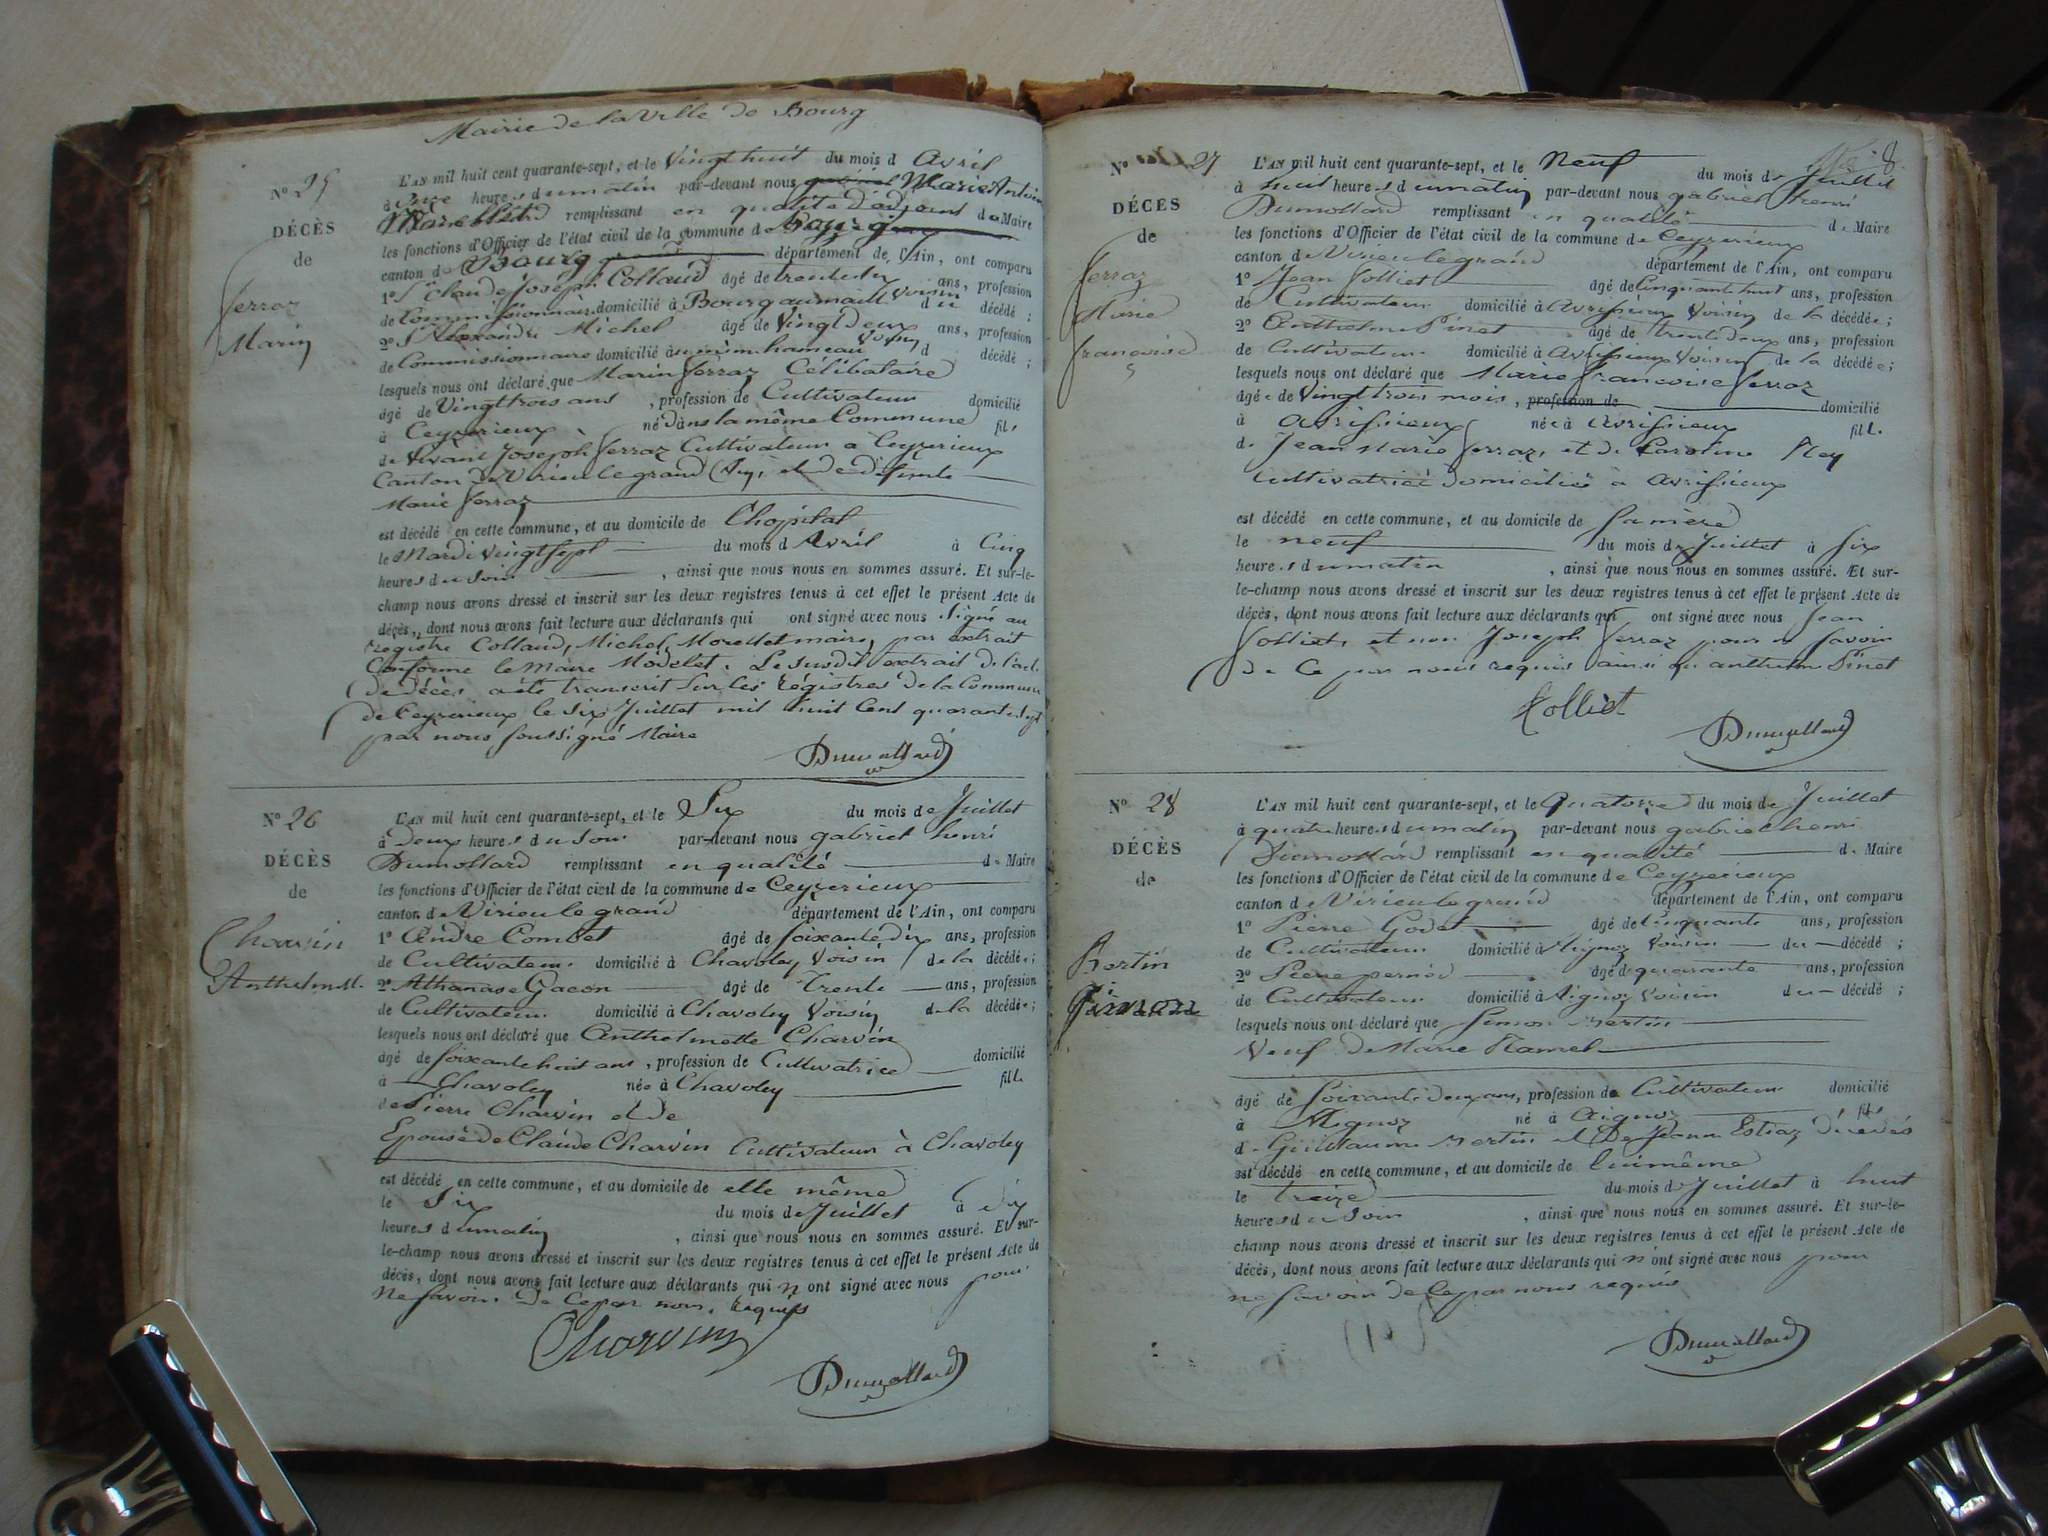 Mairie de la Ville de Bourg
N° 25
DÉCÈS
de
Ferraz
Marin
L'AN mil huit cent quarante-sept, et le Vingt huit du mois d Avril
à heures du matin par-devant nous Marie Antoine
remplissant en qualité d'adjoint de Maire
les fonctions d'Officier de l'état civil de la commune de Bourg
canton de Bourg département de l'Ain, ont comparu
1° Sr Claude Joseph Collaud âgé de trente ans, profession
de Commissionnaire domicilié à Bourg voisin du décédé ;
2° Sr Alexandre Michel âgé de Vingt Deux ans, profession
de Commissionnaire domicilié au même hameau Voisin d décédé ;
lesquels nous ont déclaré que Marin Ferraz Célibataire
âgé de Vingt trois ans, profession de Cultivateur domicilié
à Ceyzerieux né dans la même Commune fils
de vivant Joseph Ferraz Cultivateur a Ceyzerieux
Canton de Virieu le grand et de défunte
Marie Ferraz
est décédé en cette commune, et au domicile de l'hopital
le Mardi vingt sept du mois d Avril à Cinq
heures du soir, ainsi que nous nous en sommes assuré. Et sur-le-
champ nous avons dressé et inscrit sur les deux registres tenus à cet effet le présent Acte de
décès, dont nous avons fait lecture aux déclarants qui ont signé avec nous Signé au
registre Collaud, Michel, maire, par extrait
Conforme le Maire. Le susdit extrait de l'acte
de décès a été transcrit sur les régistres de la Commune
de Ceyzerieux le Six Juillet mil huit Cent quarante sept
par nous soussigné Maire
Dumollard
N° 26
DÉCÈS
de
Charvin
Anthelmette
L'AN mil huit cent quarante-sept, et le Six du mois de Juillet
à Deux heures du soir par-devant nous gabriel henri
Dumollard remplissant en qualité de Maire
les fonctions d'Officier de l'état civil de la commune de Ceyzerieux
canton de Virieu le grand département de l'Ain, ont comparu
1° André Combet âgé de soixante dix ans, profession
de Cultivateur domicilié à Chavoley Voisin de la décédée ;
2° Athanase Gacon âgé de Trente ans, profession
de Cultivateur domicilié à Chavoley Voisin de la décédée ;
lesquels nous ont déclaré que Anthelmette Charvin
âgé de soixante huit ans, profession de Cultivatrice domicilié
à Chavoley née à Chavoley fille
de Pierre Charvin et de
Epouse de Claude Charvin Cultivateur à Chavoley
est décédé en cette commune, et au domicile de elle même
le Six du mois de Juillet à dix
heures du matin, ainsi que nous nous en sommes assuré. Et sur-
le-champ nous avons dressé et inscrit sur les deux registres tenus à cet effet le présent Acte de
décès, dont nous avons fait lecture aux déclarants qui n'ont signé avec nous pour
ne savoir de ce par nous requis
Charvin
Dumollard
N° 27
DÉCÈS
de
Ferraz
Marie
françoise
8
L'AN mil huit cent quarante-sept, et le Neuf du mois de Juillet
à huit heures du matin par-devant nous gabriel henri
Dumollard remplissant en qualité de Maire
les fonctions d'Officier de l'état civil de la commune de Ceyzerieux
canton de Virieu le grand département de l'Ain, ont comparu
1° Jean Jolliet âgé de Cinquante huit ans, profession
de Cultivateur domicilié à Avrissieux Voisin de la décédée ;
2° Anthelme Pinet âgé de trente deux ans, profession
de Cultivateur domicilié à Avrissieux Voisin de la décédée ;
lesquels nous ont déclaré que Marie françoise ferraz
âgée de Vingt trois mois, profession de domicilié
à Avrissieux née à Avrissieux fille
de Jean Marie ferraz, et de Caroline Rey
Cultivatrice domiciliés à Avrissieux
est décédé en cette commune, et au domicile de sa mère
le neuf du mois de Juillet à six
heures du matin, ainsi que nous nous en sommes assuré. Et sur-
le-champ nous avons dressé et inscrit sur les deux registres tenus à cet effet le présent Acte de
décès, dont nous avons fait lecture aux déclarants qui ont signé avec nous Jean
Jolliet, et non Joseph ferraz pour ne savoir
de ce par nous requis ainsi que anthelme Pinet
Jolliet
Dumollard
N° 28
DÉCÈS
de
Bertin
Simon
L'AN mil huit cent quarante-sept, et le Quatorze du mois de Juillet
à quatre heures du matin par-devant nous gabriel henri
Dumollard remplissant en qualité de Maire
les fonctions d'Officier de l'état civil de la commune de Ceyzerieux
canton de Virieu le grand département de l'Ain, ont comparu
1° Pierre Godet âgé de Cinquante ans, profession
de Cultivateur domicilié à Aignoz Voisin du décédé ;
2° Pierre âgé de quarante ans, profession
de Cultivateur domicilié à Aignoz Voisin du décédé ;
lesquels nous ont déclaré que Simon Bertin
Veuf de Marie Ramel
âgé de Soixante deux ans, profession de Cultivateur domicilié
à Aignoz né à Aignoz fils
de Guillaume Bertin et De Jeanne décédés
est décédé en cette commune, et au domicile de lui même
le treize du mois de Juillet à huit
heures du soir, ainsi que nous nous en sommes assuré. Et sur-le-
champ nous avons dressé et inscrit sur les deux registres tenus à cet effet le présent Acte de
décès, dont nous avons fait lecture aux déclarants qui n'ont signé avec nous pour
ne savoir de ce par nous requis
Dumollard